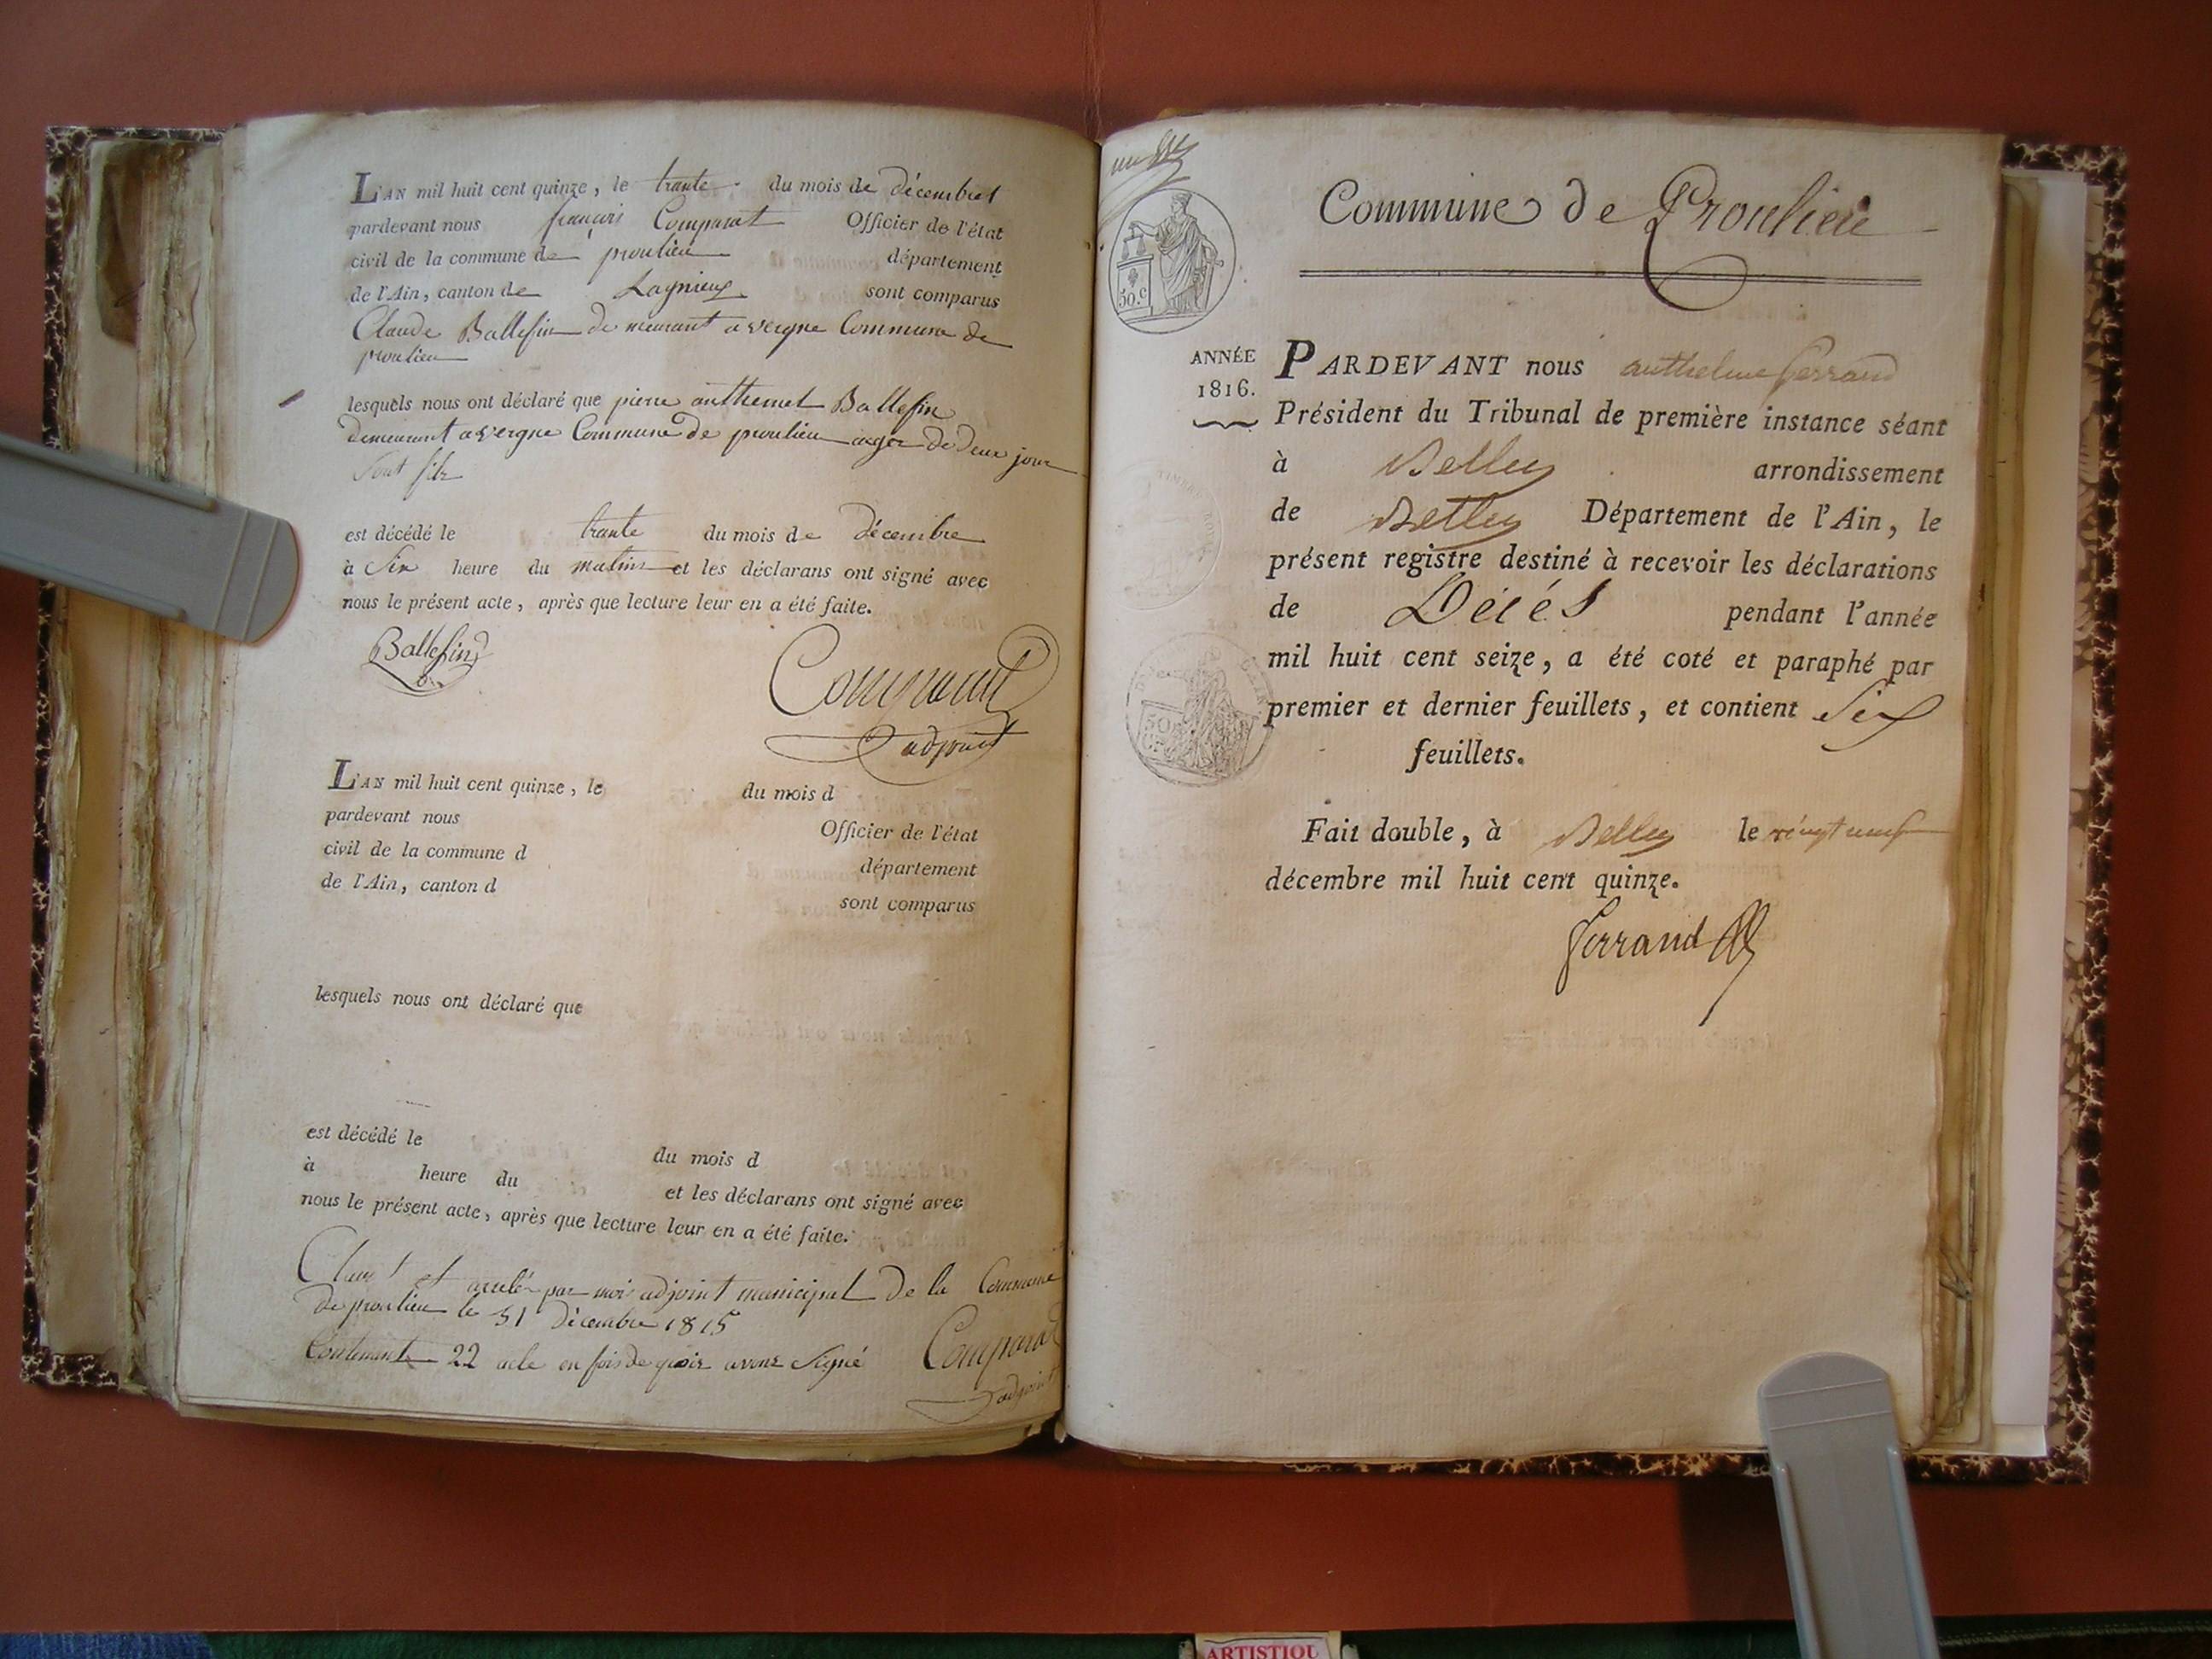 L'AN mil huit cent quinze, le trante du mois de décembre
pardevant nous françois Comparat Officier de l'état
civil de la commune de proulieu département
de l'Ain, canton de Lagnieux sont comparus
Claude Ballefin demeurant a vergne Commune de
proulieu
lesquels nous ont déclaré que pierre anthemet Ballefin
demeurant a vergne Commune de proulieu agee de deux jour
Sont fils
est décédé le trante du mois de décembre
à Six heure du matins et les déclarans ont signé avec
nous le présent acte, après que lecture leur en a été faite.
Ballefin
Comparat
adjoint
L'AN mil huit cent quinze, le du mois d
pardevant nous Officier de l'état
civil de la commune d département
de l'Ain, canton d sont comparus
lesquels nous ont déclaré que
est décédé le du mois d
à heure du et les déclarans ont signé avec
nous le présent acte, après que lecture leur en a été faite.
et par moi adjoint municipal De la Commune
De proulieu le 31 décembre 1815
Contenant 22 acte en fois de quoir avons Signé Comparat
adjoint
50.c
Commune de Proulieu
ANNÉE
1816.
PARDEVANT nous anthelme ferrand
Président du Tribunal de première instance séant
à Belley arrondissement
de Belley Département de l'Ain, le
présent registre destiné à recevoir les déclarations
de Décés pendant l'année
mil huit cent seize, a été coté et paraphé par
premier et dernier feuillets, et contient Six
feuillets.
Fait double, à Belley le vingt neuf
décembre mil huit cent quinze.
ferrand
ARTISTIQU